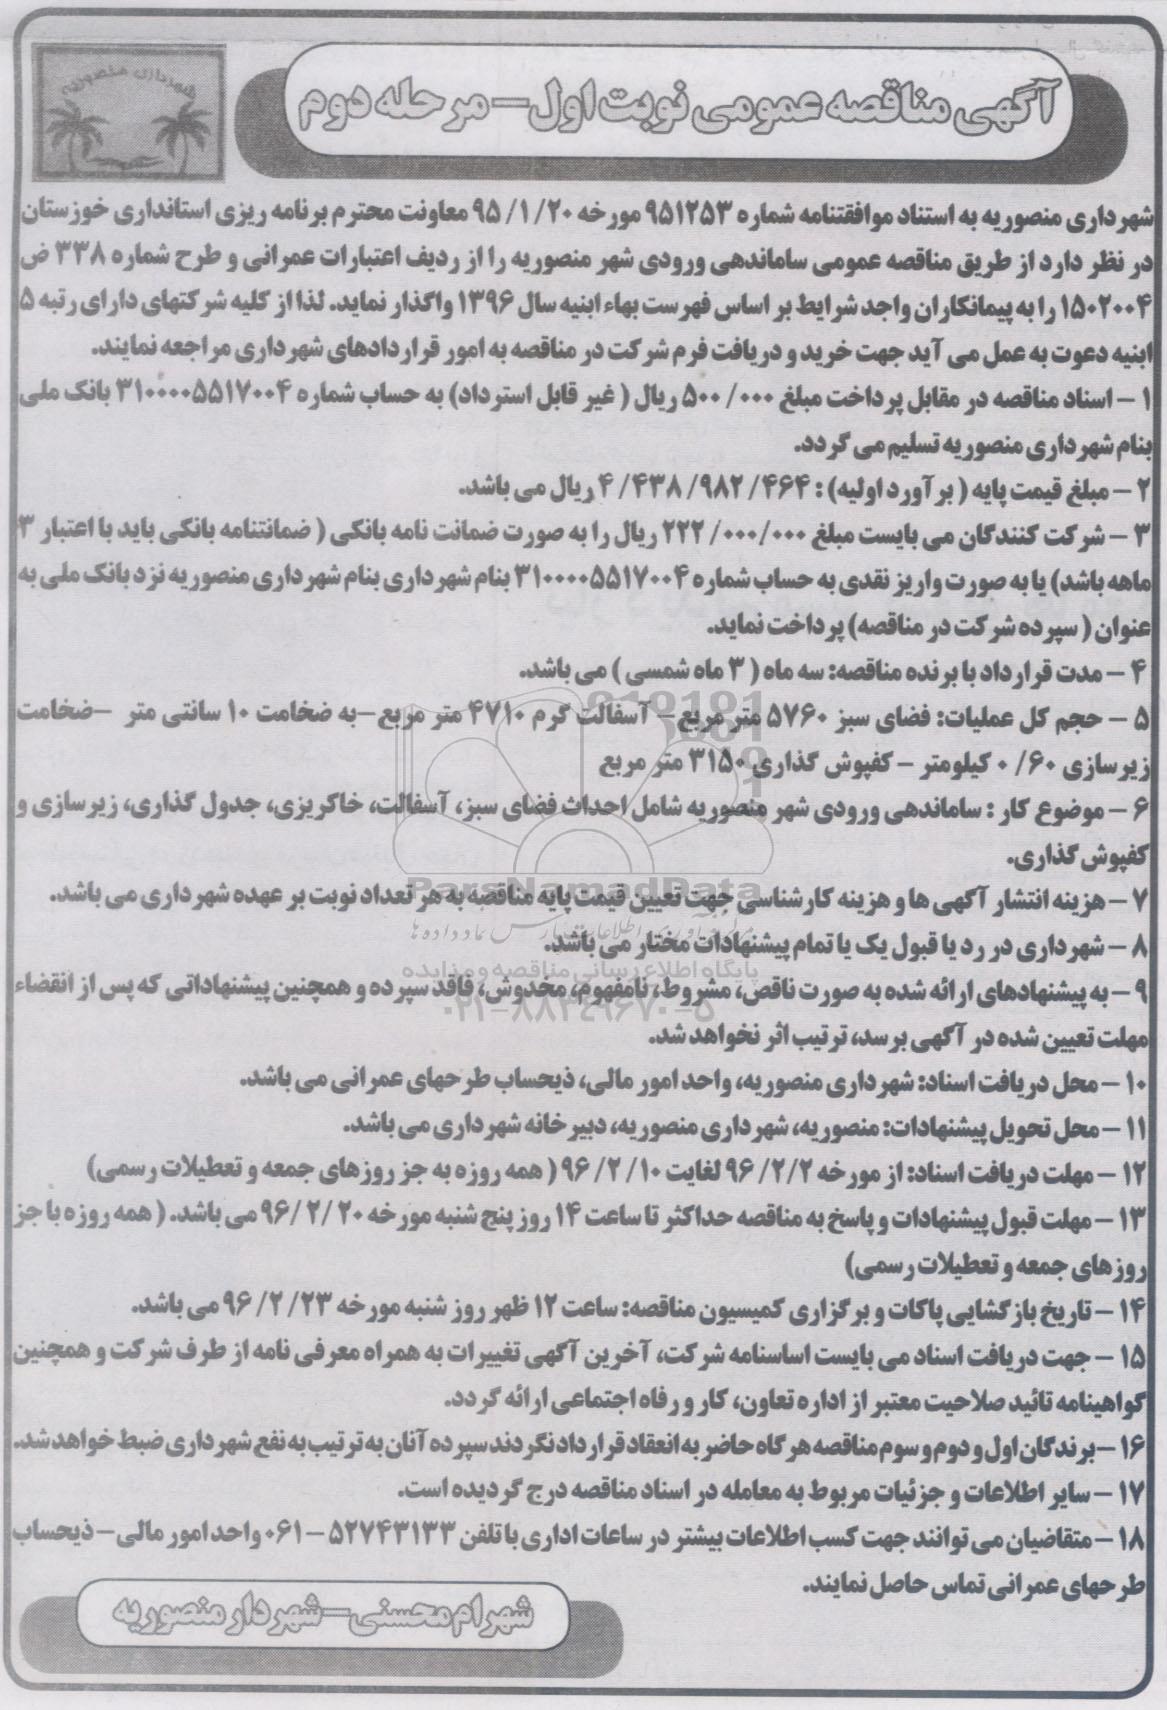 شهرداری منصوریه
آگهی مناقصه عمومی نوبت اول – مرحله دوم
شهرداری منصوریه به استناد موافقتنامه شماره ۹۵۱۲۵۳ مورخه ۹۵/۱/۲۰ معاونت محترم برنامه ریزی استانداری خوزستان
در نظر دارد از طریق مناقصه عمومی ساماندهی ورودی شهر منصوریه را از ردیف اعتبارات عمرانی و طرح شماره ۳۳۸ ض
۱۵۰۲۰۰۴ را به پیمانکاران واجد شرایط بر اساس فهرست بهاء ابنیه سال ۱۳۹۶ واگذار نماید. لذا از کلیه شرکتهای دارای رتبه ۵
ابنیه دعوت به عمل می آید جهت خرید و دریافت فرم شرکت در مناقصه به امور قراردادهای شهرداری مراجعه نمایند.
۱ – اسناد مناقصه در مقابل پرداخت مبلغ ۵۰۰/۰۰۰ ریال ( غیر قابل استرداد) به حساب شماره ۳۱۰۰۰۰۵۵۱۷۰۰۴ بانک ملی
بنام شهرداری منصوریه تسلیم می گردد.
۲ – مبلغ قیمت پایه ( برآورد اولیه) : ۴/۴۳۸/۹۸۲/۴۶۴ ریال می باشد.
۳ – شرکت کنندگان می بایست مبلغ ۲۲۲/۰۰۰/۰۰۰ ریال را به صورت ضمانت نامه بانکی ( ضمانتنامه بانکی باید با اعتبار ۳
ماهه باشد) یا به صورت واریز نقدی به حساب شماره ۳۱۰۰۰۰۵۵۱۷۰۰۴ بنام شهرداری بنام شهرداری منصوریه نزد بانک ملی به
عنوان ( سپرده شرکت در مناقصه) پرداخت نماید.
۴ – مدت قرارداد با برنده مناقصه: سه ماه ( ۳ ماه شمسی ) می باشد.
۵ – حجم کل عملیات: فضای سبز ۵۷۶۰ متر مربع – آسفالت گرم ۴۷۱۰ متر مربع –به ضخامت ۱۰ سانتی متر –ضخامت
زیرسازی ۰/۶۰ کیلومتر – کفپوش گذاری ۳۱۵۰ متر مربع
۶ – موضوع کار : ساماندهی ورودی شهر منصوریه شامل احداث فضای سبز، آسفالت، خاکریزی، جدول گذاری، زیرسازی و
کفپوش گذاری.
ParsNamadData
۷ – هزینه انتشار آگهی ها و هزینه کارشناسی جهت تعیین قیمت پایه مناقصه به هر تعداد نوبت بر عهده شهرداری می باشد.
۸ – شهرداری در رد یا قبول یک یا تمام پیشنهادات مختار می باشد.
پایگاه اطلاع رسانی مناقصه و مزایده
۹ – به پیشنهادهای ارائه شده به صورت ناقص، مشروط، نامفهوم، مخدوش، فاقد سپرده و همچنین پیشنهاداتی که پس از انقضاء
۰۲۱-۸۸۳۴۹۶۷۰-۵
مهلت تعیین شده در آگهی برسد، ترتیب اثر نخواهد شد.
۱۰ – محل دریافت اسناد: شهرداری منصوریه، واحد امور مالی، ذیحساب طرحهای عمرانی می باشد.
۱۱ – محل تحویل پیشنهادات: منصوریه، شهرداری منصوریه، دبیرخانه شهرداری می باشد.
۱۲ – مهلت دریافت اسناد: از مورخه ۹۶/۲/۲ لغایت ۹۶/۲/۱۰ ( همه روزه به جز روزهای جمعه و تعطیلات رسمی)
۱۳ – مهلت قبول پیشنهادات و پاسخ به مناقصه حداکثر تا ساعت ۱۴ روز پنج شنبه مورخه ۹۶/۲/۲۰ می باشد. ( همه روزه با جز
روزهای جمعه و تعطیلات رسمی)
۱۴ – تاریخ بازگشایی پاکات و برگزاری کمیسیون مناقصه: ساعت ۱۲ ظهر روز شنبه مورخه ۹۶/۲/۲۳ می باشد.
۱۵ – جهت دریافت اسناد می بایست اساسنامه شرکت، آخرین آگهی تغییرات به همراه معرفی نامه از طرف شرکت و همچنین
گواهینامه تائید صلاحیت معتبر از اداره تعاون، کار و رفاه اجتماعی ارائه گردد.
۱۶ –برندگان اول و دوم و سوم مناقصه هر گاه حاضر به انعقاد قرارداد نگردند سپرده آنان به ترتیب به نفع شهرداری ضبط خواهد شد.
۱۷ – سایر اطلاعات و جزئیات مربوط به معامله در اسناد مناقصه درج گردیده است.
۱۸ – متقاضیان می توانند جهت کسب اطلاعات بیشتر در ساعات اداری با تلفن ۵۲۷۴۳۱۳۳ – ۰۶۱ واحد امور مالی – ذیحساب
طرحهای عمرانی تماس حاصل نمایند.
شهرام محسنی – شهردار منصوریه